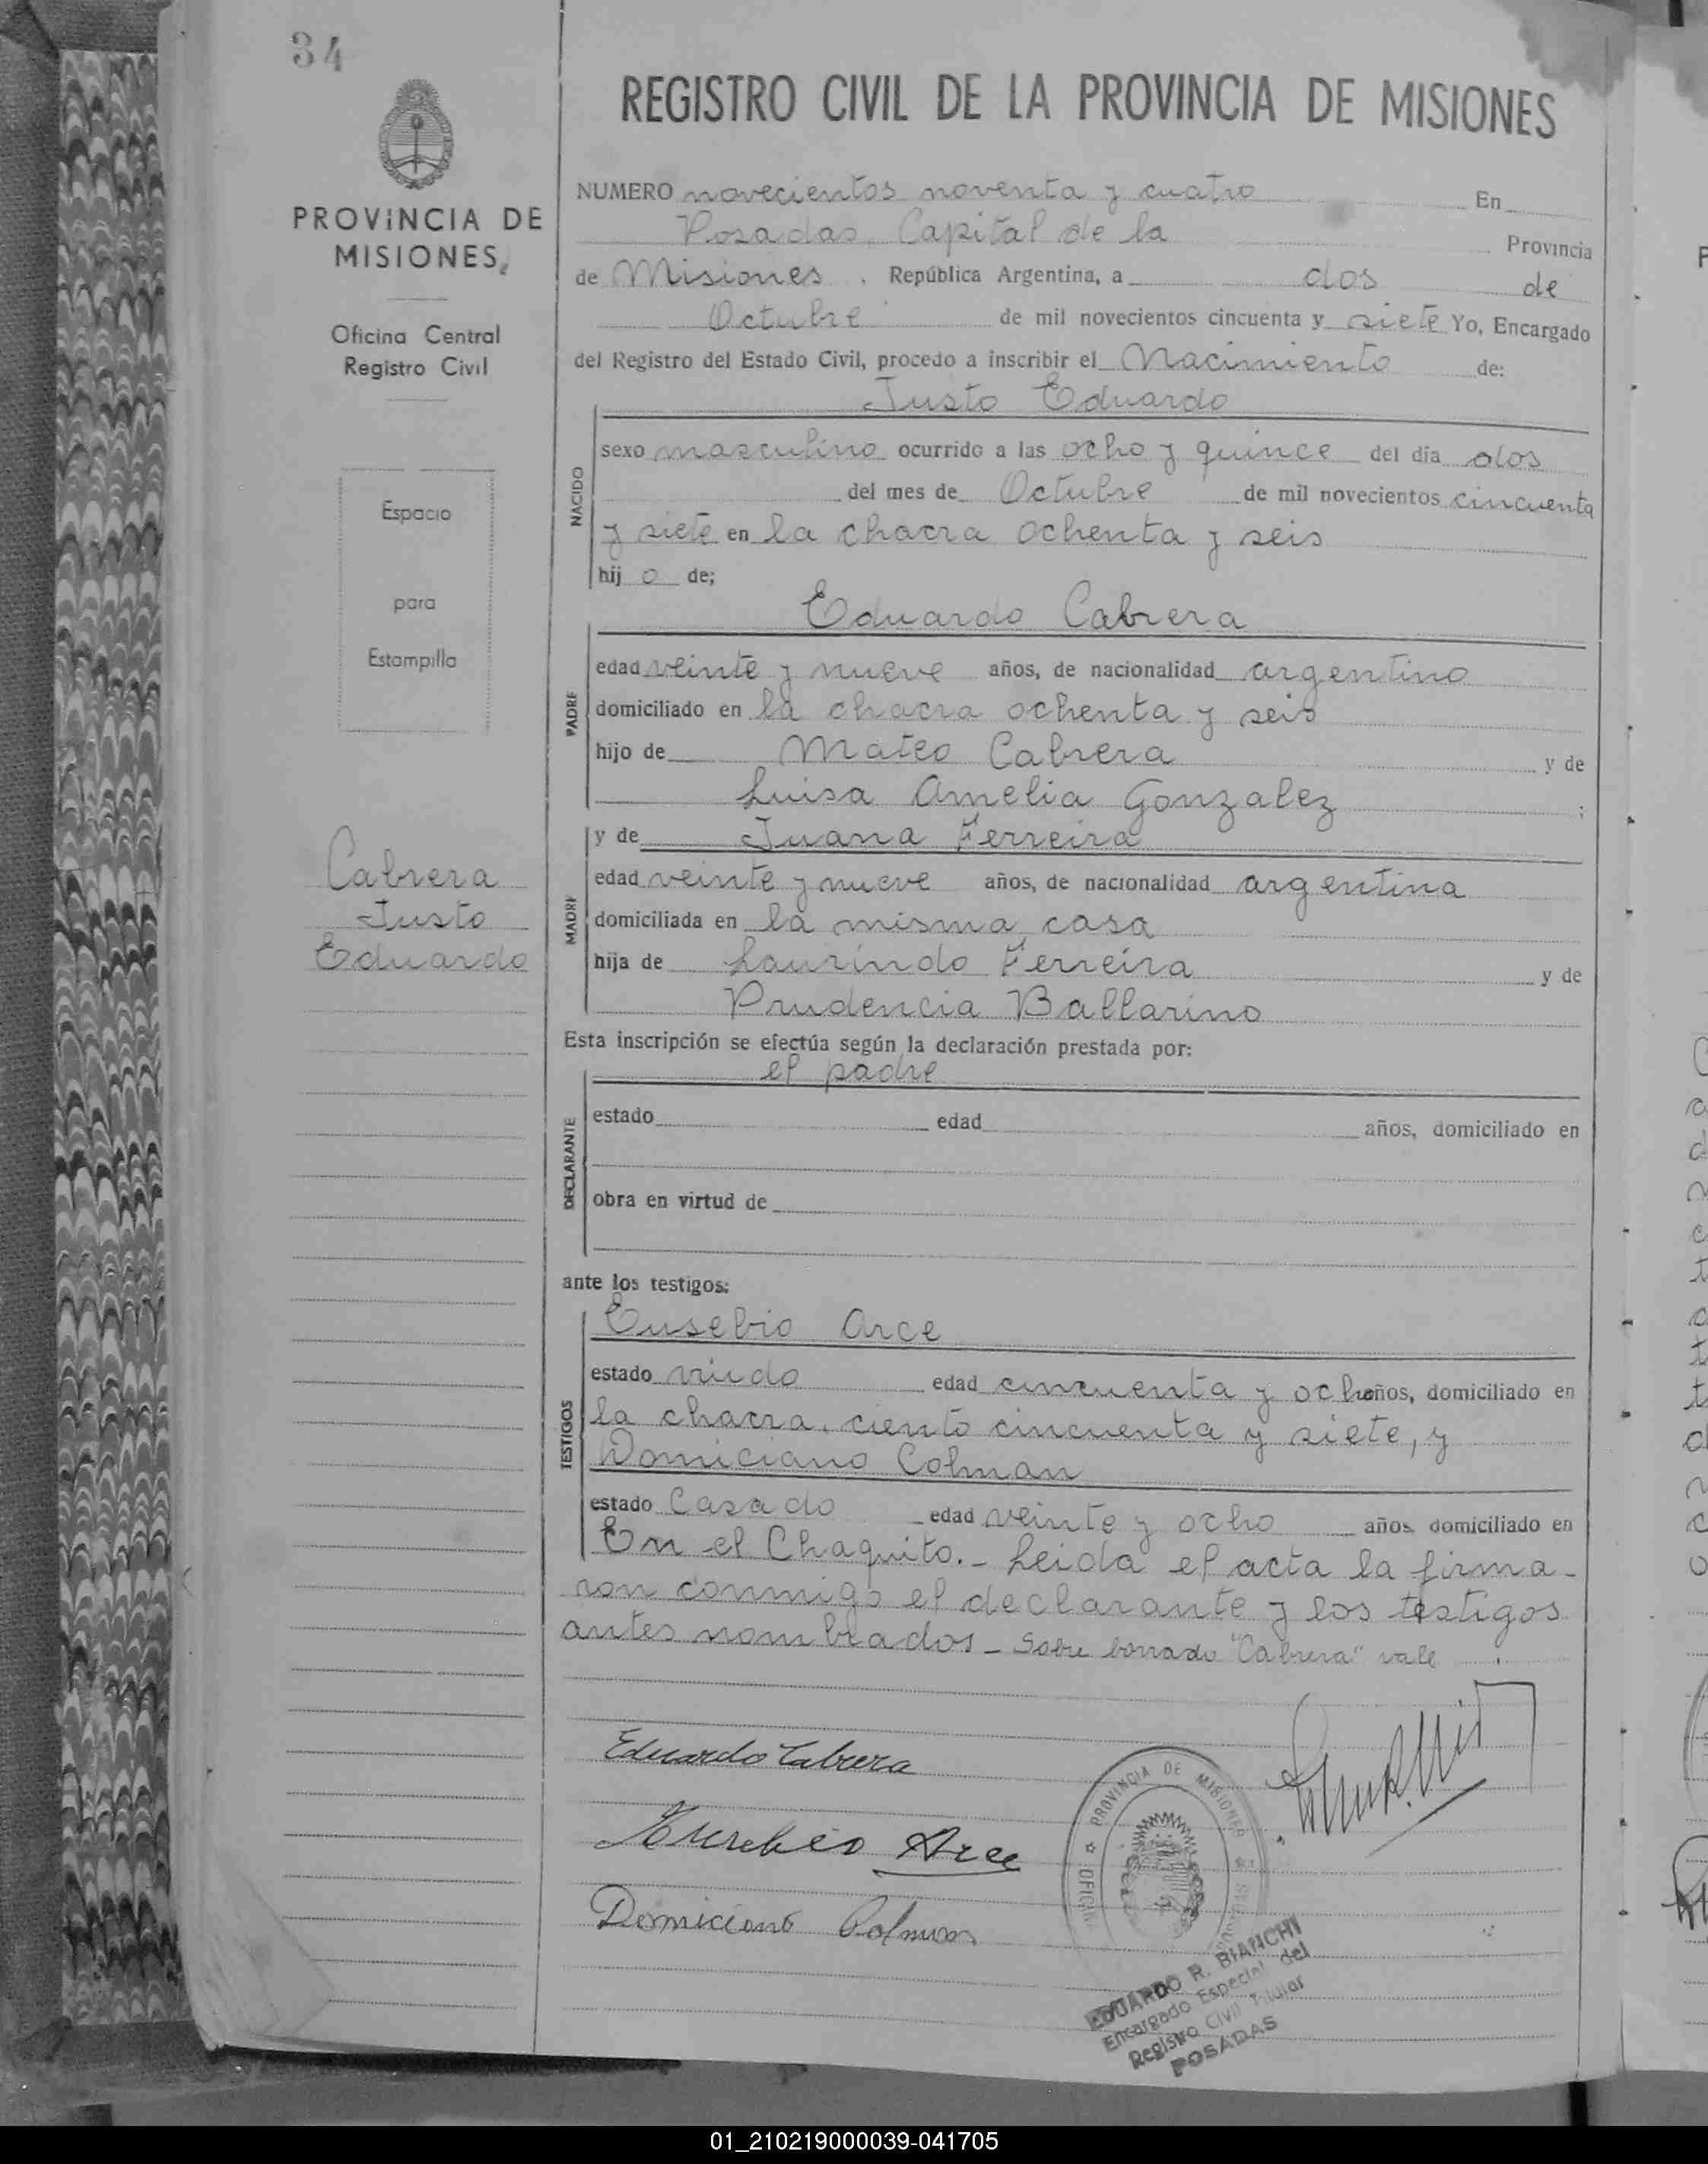 34
PROVINCIA DE
MISIONES
Oficina Central
Registro Civil
Espacio
para
Estampilla
Cabrera
Justo
Eduardo
REGISTRO CIVIL DE LA PROVINCIA DE MISIONES
NUMERO novecientos noventa y cuatro En
Posadas, Capital de la Provincia
de Misiones. República Argentina, a dos de
Octubre de mil novecientos cincuenta y siete Yo, Encargado
del Registro del Estado Civil, procedo a inscribir el Nacimiento de:
Justo Eduardo
NACIDO
sexo masculino ocurrido a las ocho y quince del día dos
del mes de Octubre de mil novecientos cincuenta
y siete en la chacra ochenta y seis
hij o de;
Eduardo Cabrera
PADRE
edad veinte y nueve años, de nacionalidad argentino
domiciliado en la chacra ochenta y seis
hijo de Mateo Cabrera y de
Luisa Amelia Gonzalez ;
y de Juana Ferreira
MADRE
edad veinte y nueve años, de nacionalidad argentina
domiciliada en la misma casa
hija de Laurindo Ferreira y de
Prudencia Ballarino
Esta inscripción se efectúa según la declaración prestada por:
el padre
DECLARANTE
estado edad años, domiciliado en
obra en virtud de
ante los testigos:
Eusebio Arce
TESTIGOS
estado viudo edad cincuenta y ocho años, domiciliado en
la chacra, ciento cincuenta y siete, y
Domiciano Colman
estado Casado edad veinte y ocho años domiciliado en
En el Chaquito.- Leida el acta la firma-
ron conmigo el declarante y los testigos
antes nombrados - Sobre borrado "Cabrera" vale
Eduardo Cabrera
Eusebio Arce
Domiciano Colman
PROVINCIA DE MISIONES
EDUARDO R. BIANCHI
Encargado Especial del
Registro Civil Titular
POSADAS
01_210219000039-041705